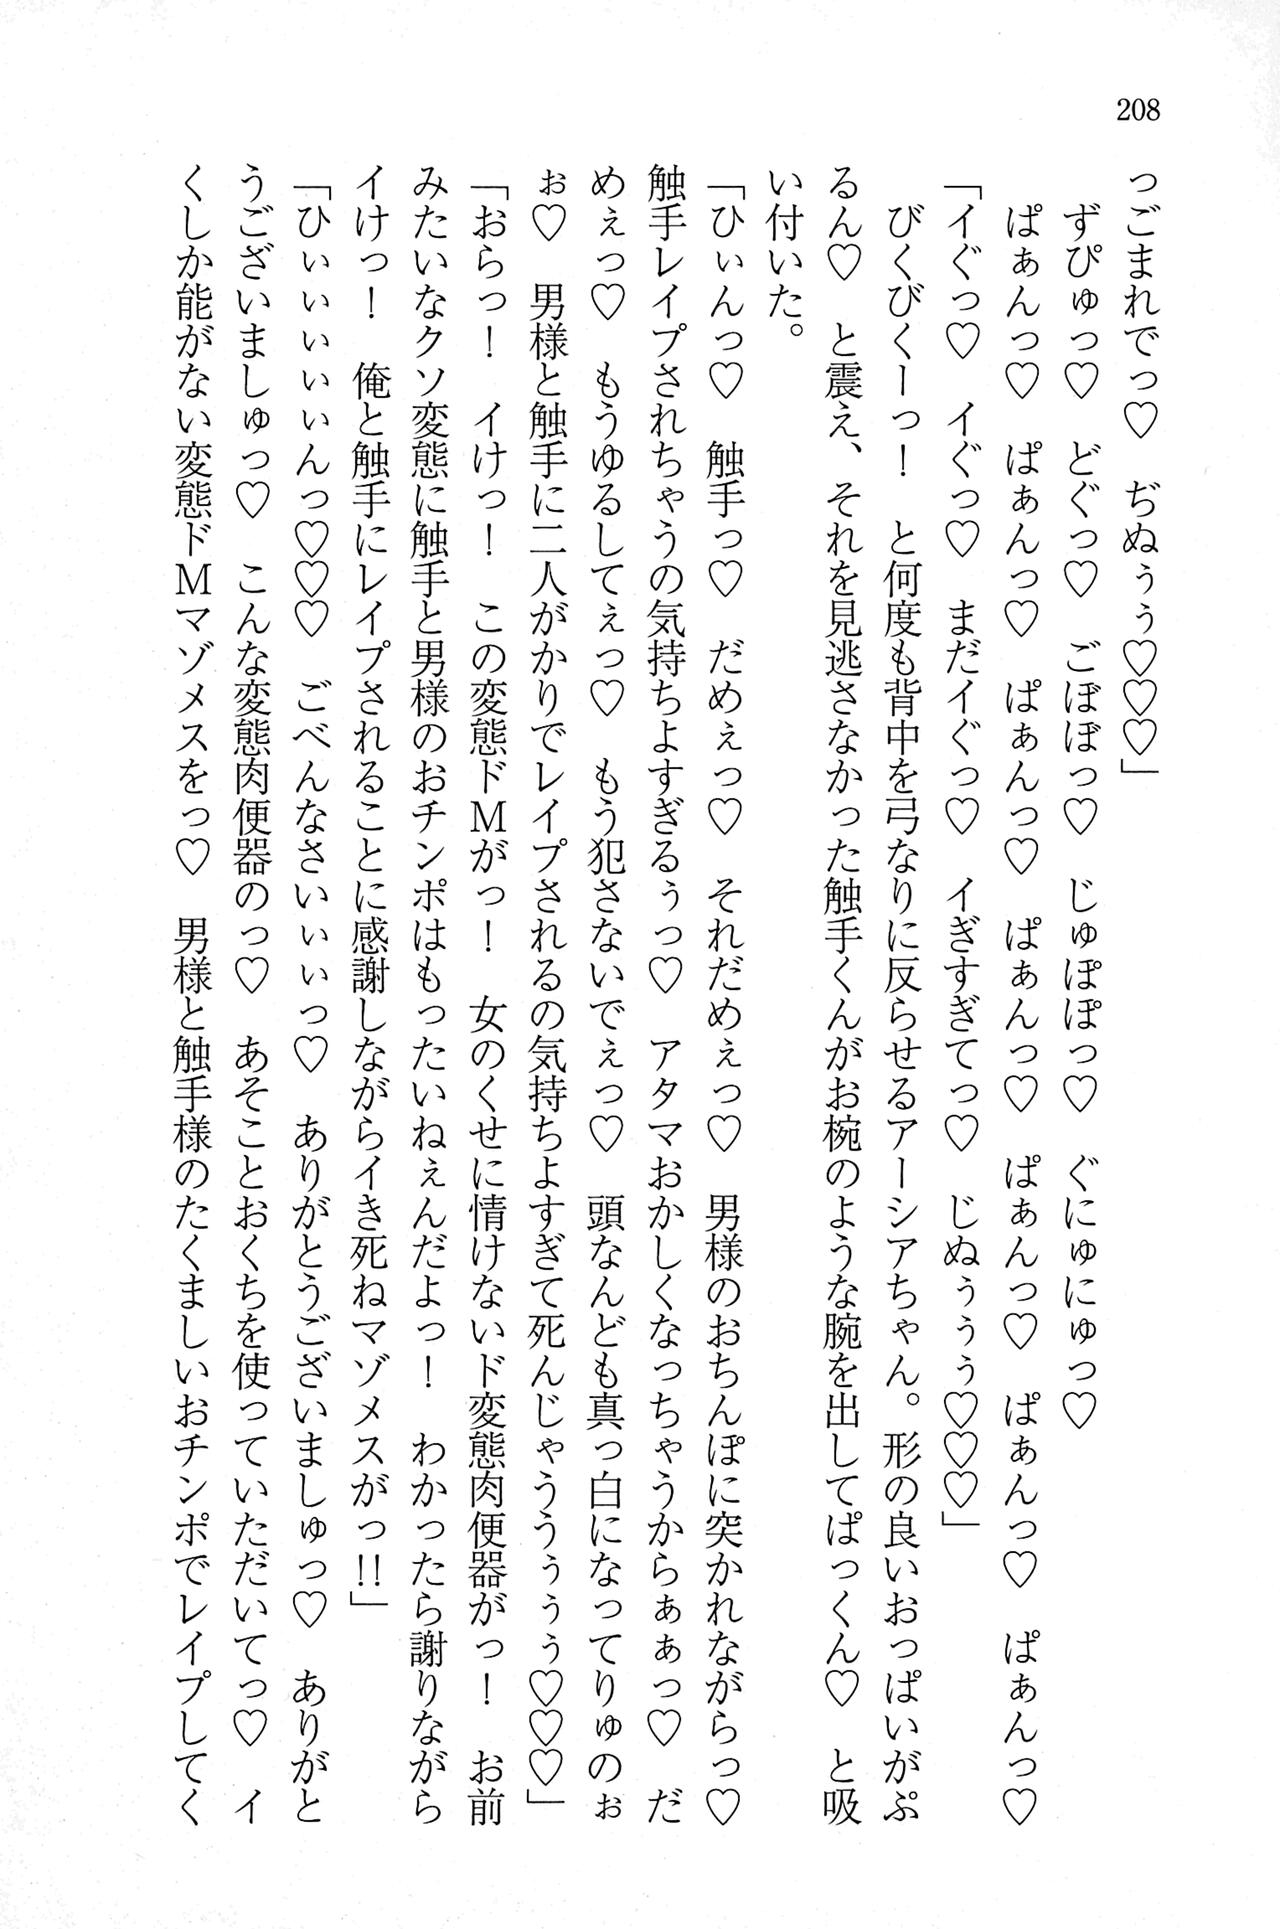 208
っごまれでっ♡　ぢぬぅぅ♡♡♡」
ずぴゅっ♡　どぐっ♡　ごぼぼっ♡　じゅぽぽっ♡　ぐにゅにゅっ♡
ぱぁんっ♡　ぱぁんっ♡　ぱぁんっ♡　ぱぁんっ♡　ぱぁんっ♡　ぱぁんっ♡　ぱぁんっ♡
「イぐっ♡　イぐっ♡　まだイぐっ♡　イぎすぎてっ♡　じぬぅぅぅ♡♡♡」
びくびくーっ！　と何度も背中を弓なりに反らせるアーシアちゃん。形の良いおっぱいがぷ
るん♡　と震え、それを見逃さなかった触手くんがお椀のような腕を出してぱっくん♡　と吸
い付いた。
「ひぃんっ♡　触手っ♡　だめぇっ♡　それだめぇっ♡　男様のおちんぽに突かれながらっ♡
触手レイプされちゃうの気持ちよすぎるぅっ♡　アタマおかしくなっちゃうからぁぁっ♡　だ
めぇっ♡　もうゆるしてぇっ♡　もう犯さないでぇっ♡　頭なんども真っ白になってりゅのぉ
ぉ♡　男様と触手に二人がかりでレイプされるの気持ちよすぎて死んじゃううぅぅぅ♡♡♡」
「おらっ！　イけっ！　この変態ドＭがっ！　女のくせに情けないド変態肉便器がっ！　お前
みたいなクソ変態に触手と男様のおチンポはもったいねぇんだよっ！　わかったら謝りながら
イけっ！　俺と触手にレイプされることに感謝しながらイき死ねマゾメスがっ!!」
「ひぃぃぃぃぃんっ♡♡♡　ごべんなさいぃぃっ♡　ありがとうございましゅっ♡　ありがと
うございましゅっ♡　こんな変態肉便器のっ♡　あそことおくちを使っていただいてっ♡　イ
くしか能がない変態ドＭマゾメスをっ♡　男様と触手様のたくましいおチンポでレイプしてく